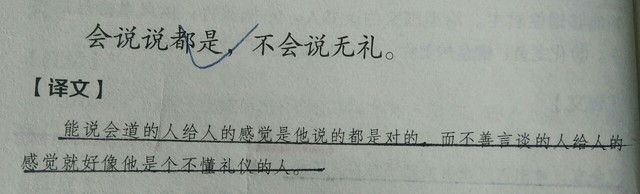 会说说都是，不会说无礼。
【译文】
能说会道的人给人的感觉是他说的都是对的，而不善言谈的人给人的
感觉就好像他是个不懂礼仪的人。